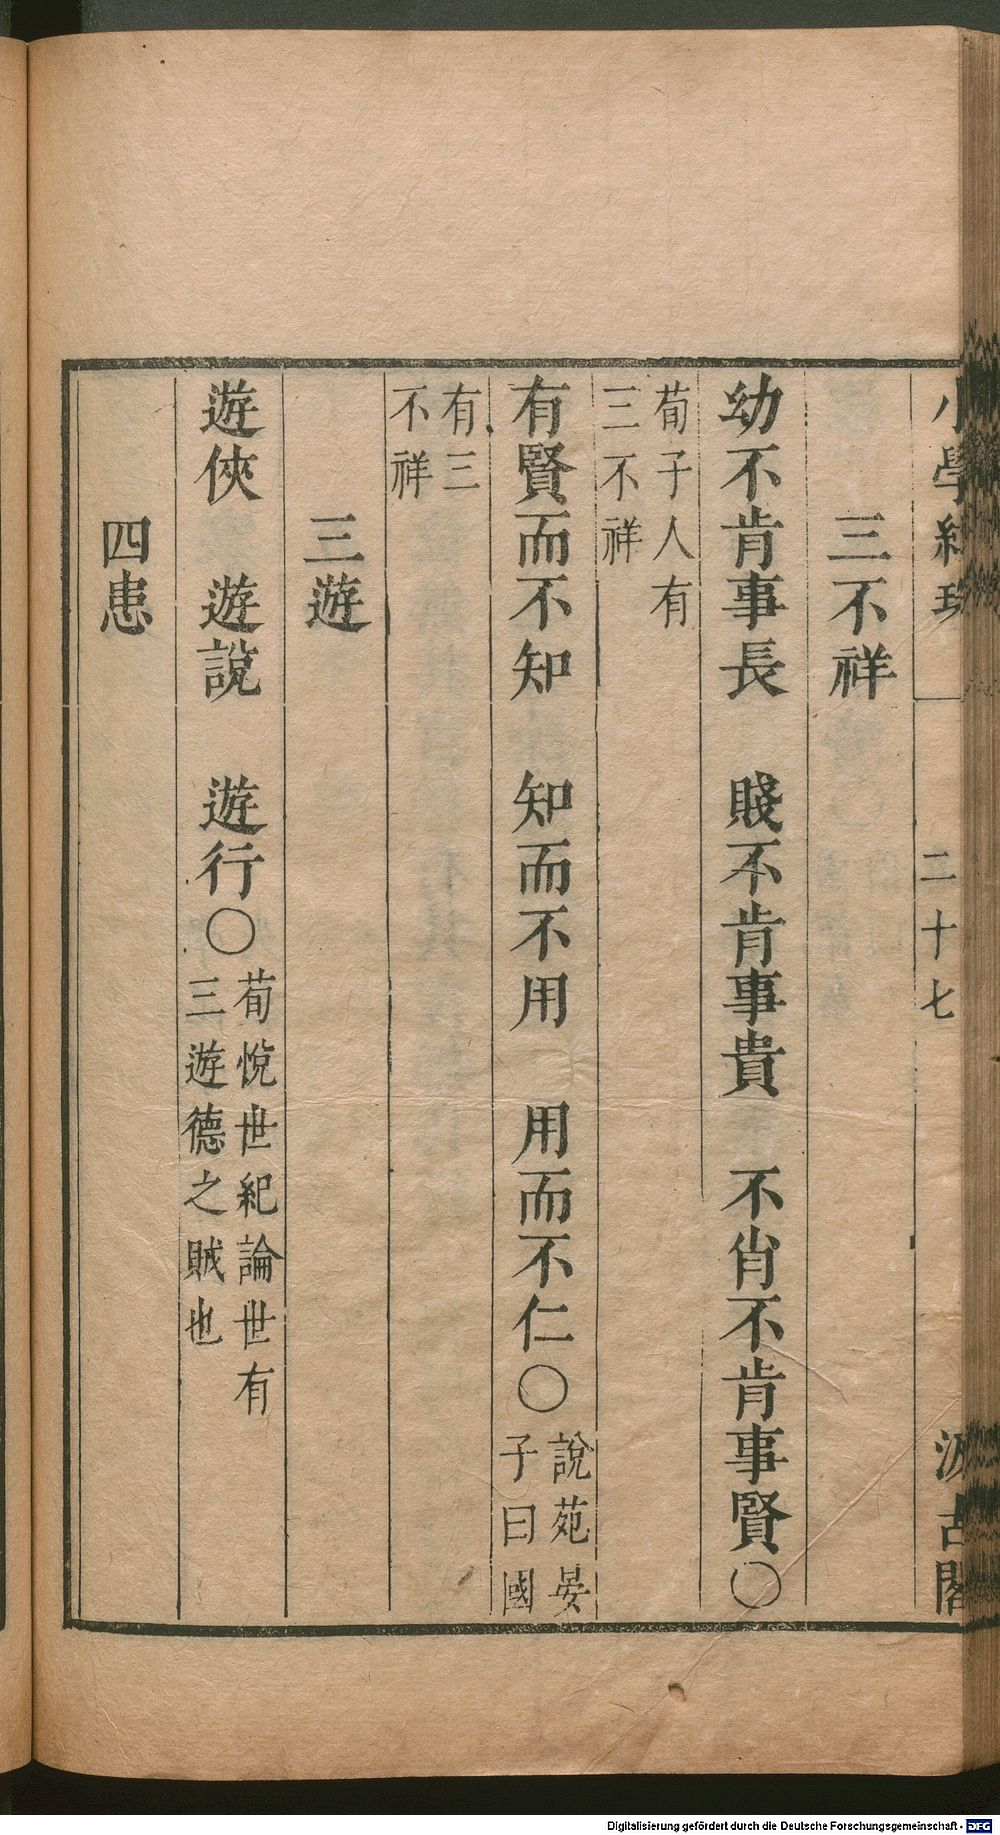 小學紺珠 二十七 汲古閣
三不祥
幼不肯事長 賤不肯事貴 不肖不肯事賢〇
荀子人有
三不祥
有賢而不知 知而不用 用而不仁〇說苑晏
子曰國
有三
不祥
三遊
遊俠 遊說 遊行〇荀悅世紀論世有
三遊德之賊也
四患
Digitalisierung gefördert durch die Deutsche Forschungsgemeinschaft - DFG